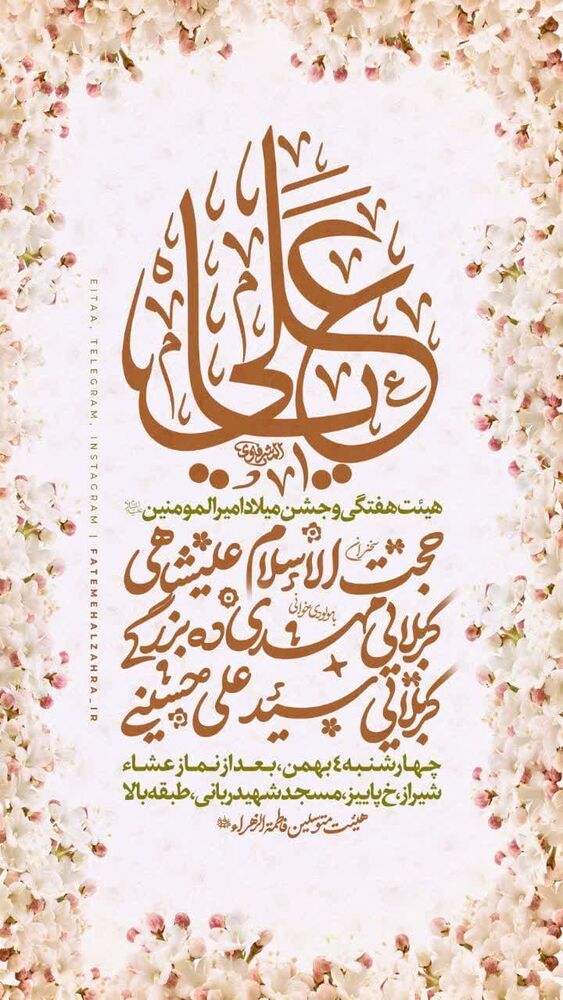 یا علی
هیئت هفتگی و جشن میلاد امیرالمومنین
سخنرانی
حجت الاسلام علیشاهی
بامولودی‌خوانی
کربلائی مهدی ده بزرگی
کربلائی سید علی حسینی
چهارشنبه ٤ بهمن، بعد از نماز عشاء
شیراز، خ پاییز، مسجد شهید ربانی، طبقه بالا
هیئت متوسلین فاطمة الزهراء
EITAA, TELEGRAM, INSTAGRAM | FATEMEHALZAHRA_IR